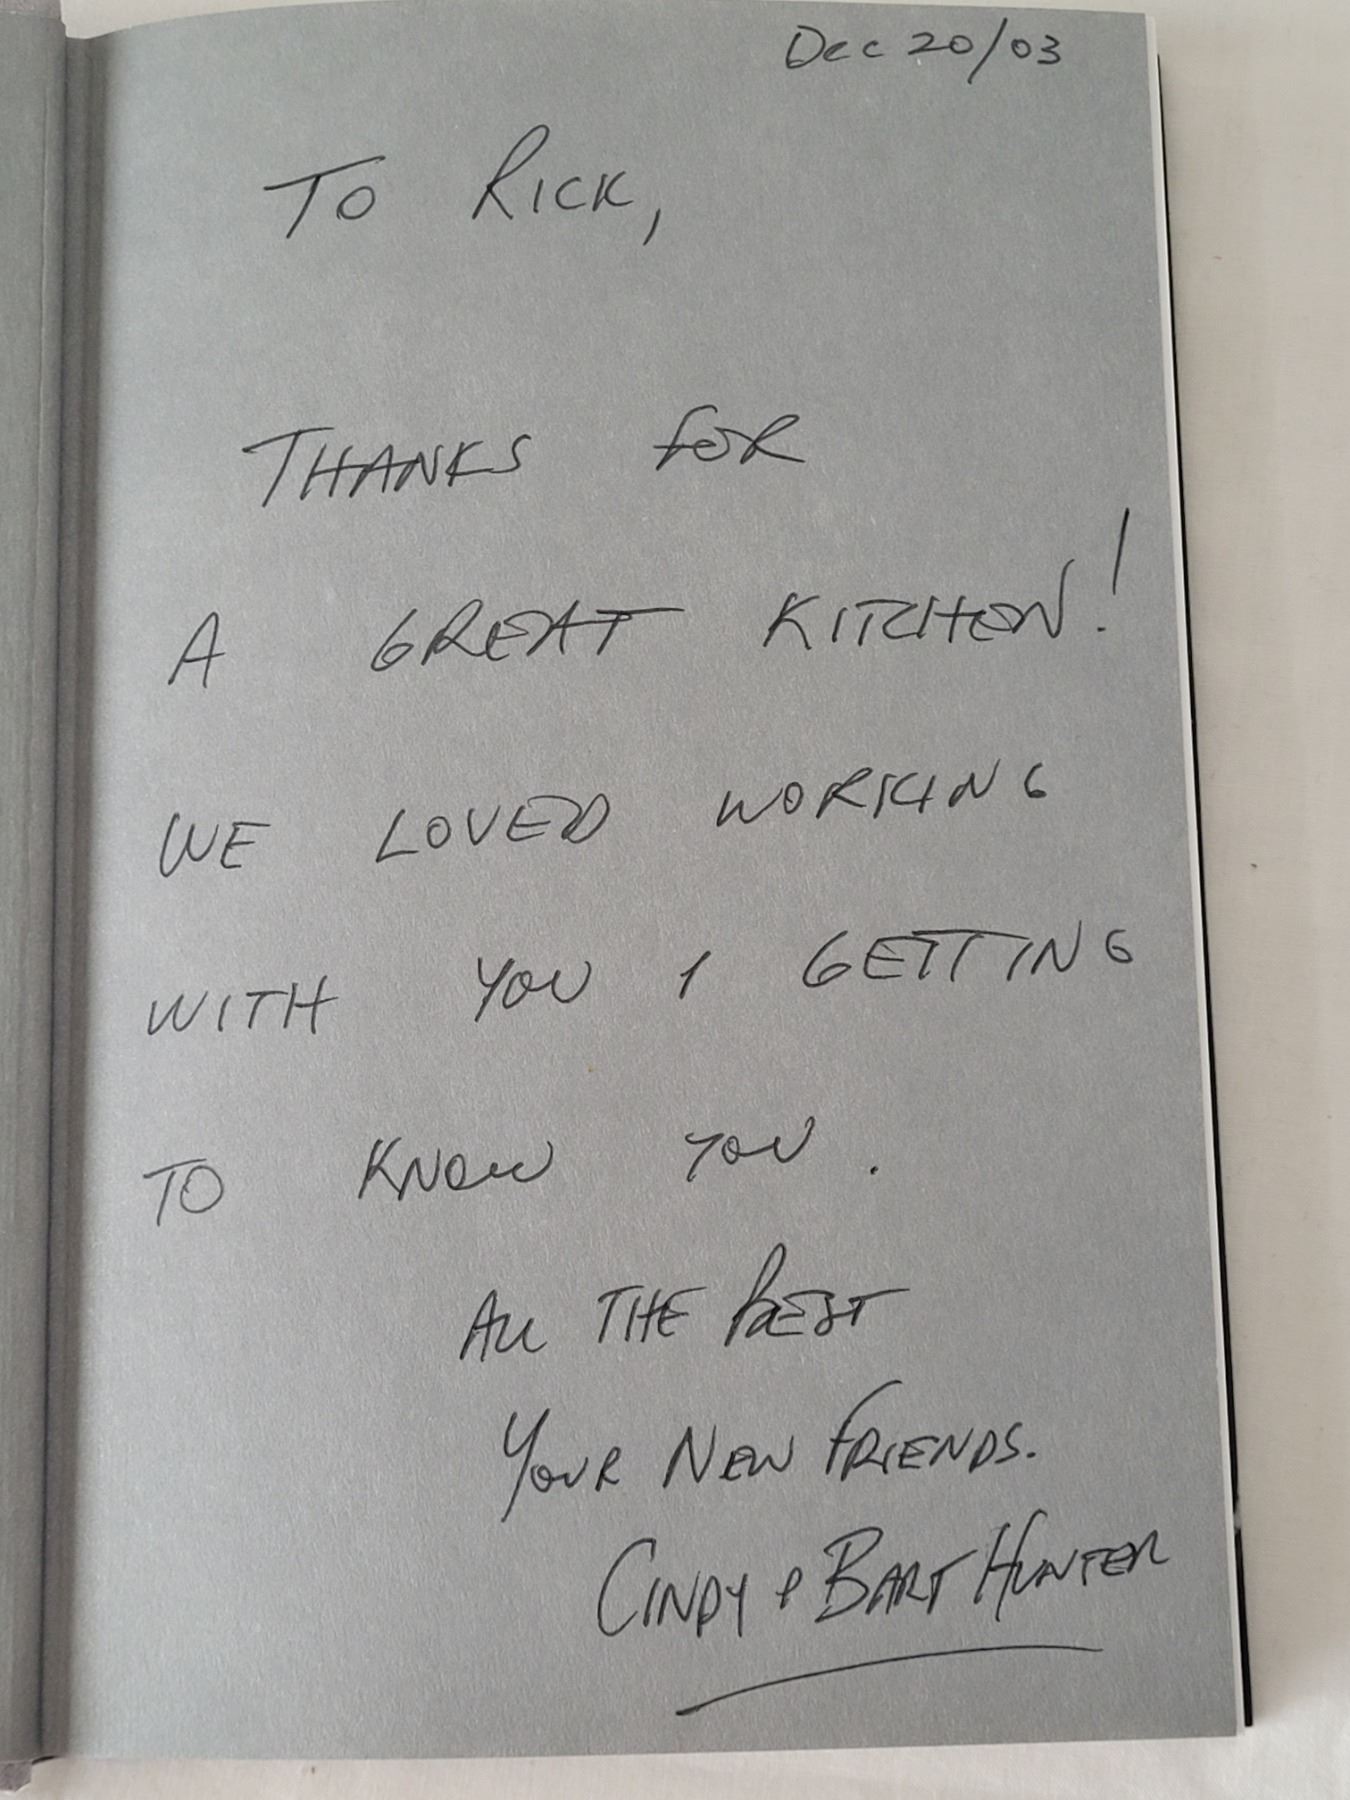 Dec 20/03
TO RICK,
THANKS FOR
A GREAT KITCHEN!
WE LOVED WORKING
WITH YOU & GETTING
TO KNOW YOU.
ALL THE BEST
YOUR NEW FRIENDS.
CINDY & BART HUNTER